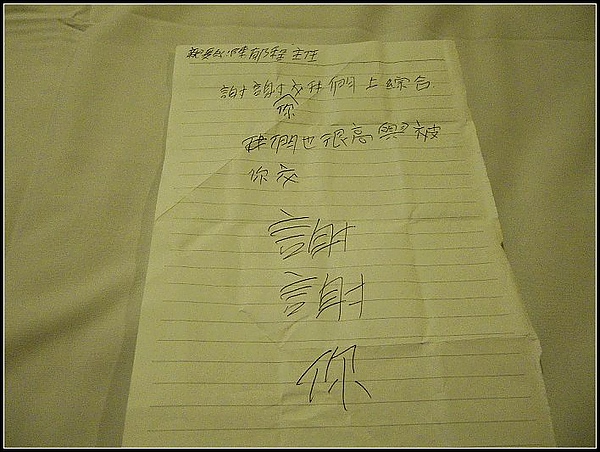 親愛的陳郁程主任
謝謝你交我們上綜合
我們也很高興被
你交
謝
謝
你